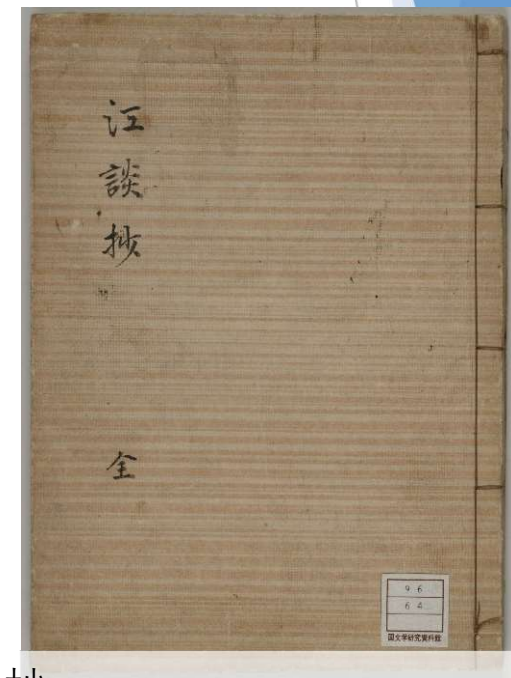 江談抄
全
96
64
国文学研究資料館